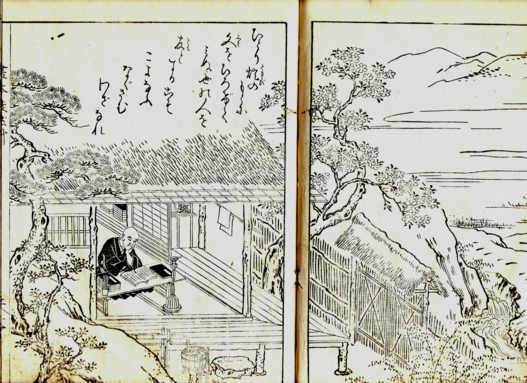 ひとり灯のもとに
文をひろげて
みぬ世の人を
こよなふ
なぐさむ
わざなれ